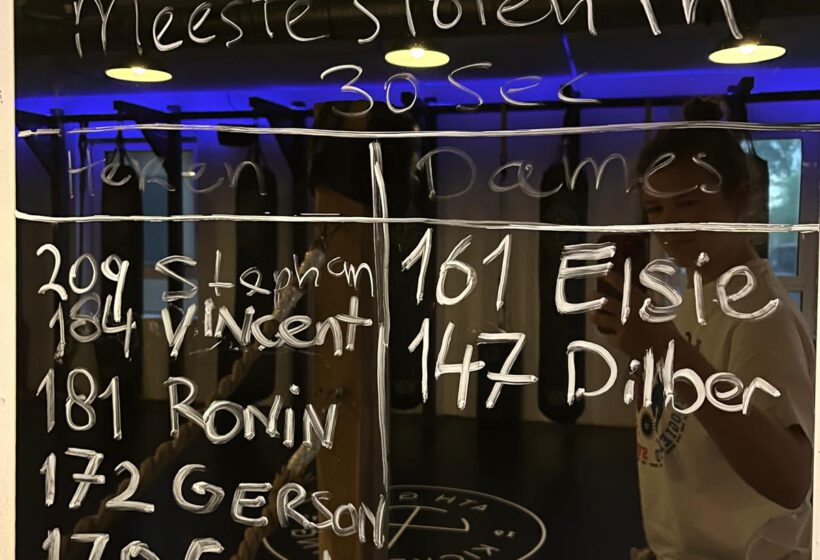 Meeste stoten in
30 Sec
Heren Dames
209 Stephan
184 Vincent
181 RONIN
172 GERSON
161 Elsie
147 Dilber